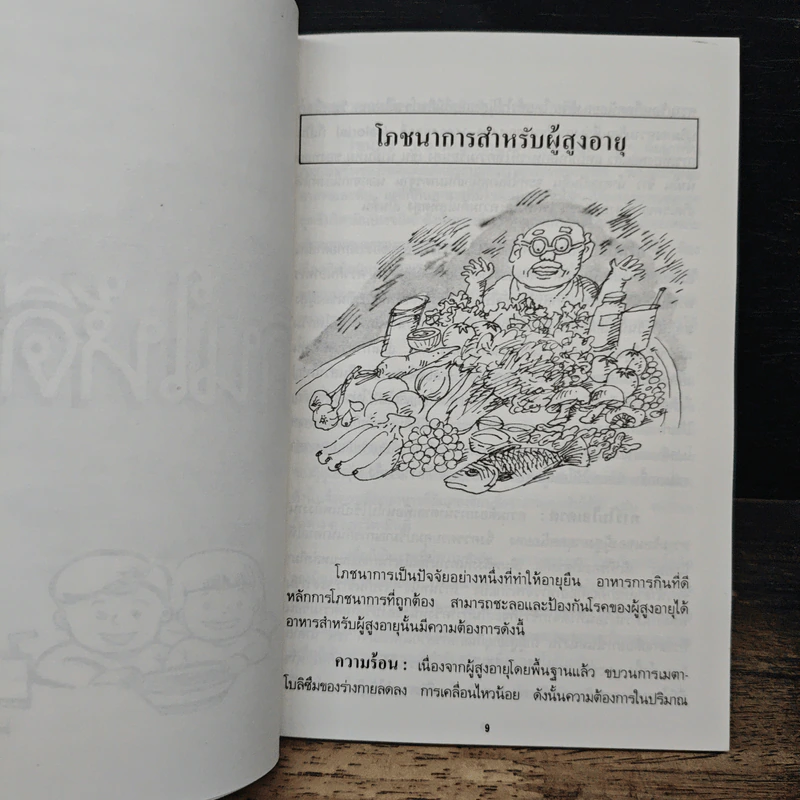 โภชนาการสำหรับผู้สูงอายุ
โภชนาการเป็นปัจจัยอย่างหนึ่งที่ทำให้อายุยืน อาหารการกินที่ดี
หลักการโภชนาการที่ถูกต้อง สามารถชะลอและป้องกันโรคของผู้สูงอายุได้
อาหารสำหรับผู้สูงอายุนั้นมีความต้องการดังนี้
ความร้อน : เนื่องจากผู้สูงอายุโดยพื้นฐานแล้ว ขบวนการเมตา-
โบลิซึมของร่างกายลดลง การเคลื่อนไหวน้อย ดังนั้นความต้องการในปริมาณ
9